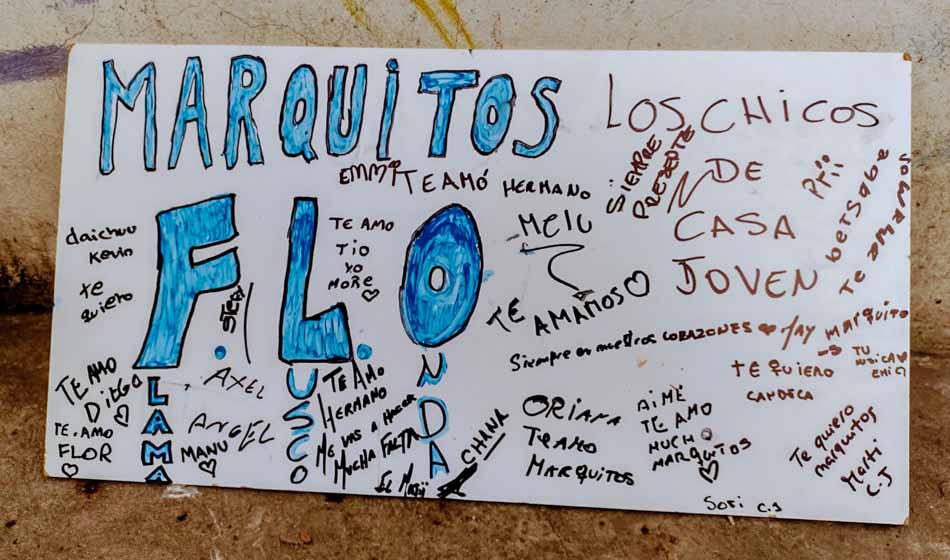 MARQUiTOS
F. L. O
LAMA
USCO
NDA
LOS CHiCOS
DE
CASA
JOVEN
SiEMPRE
PRESENTE
EMMi TE AMÓ HERMANO
MELU
TE AMAMOS
daichuu
Kevin
te
quiero
TE AMO
TiO
YO
MORE
STEFI
TE AMO
DiEGO
TE AMO
FLOR
AXEL
ANGEL
MANU
TE AMO
HERMANO
ME VAS A HACER
MUCHA FALTA
EL MATii
CHANA
Siempre en nuestros CORAZONES
MARQUITO
betsabe
Te amamos
TE QUIERO
CANDELA
ORiANA
TE AMO
MARQUiTOS
AiME
TE AMO
MUCHO
MARQUiTOS
Te quiero
marquitos
Marti
C.J
SOFi C.J